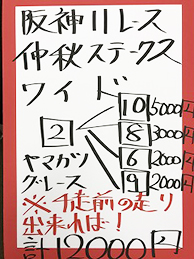 阪神11レース
仲秋ステークス
ワイド
2
10 5000円
8 3000円
6 2000円
9 2000円
ヤマカツ
グレース
※4走前の走り
出来れば!
計12000円